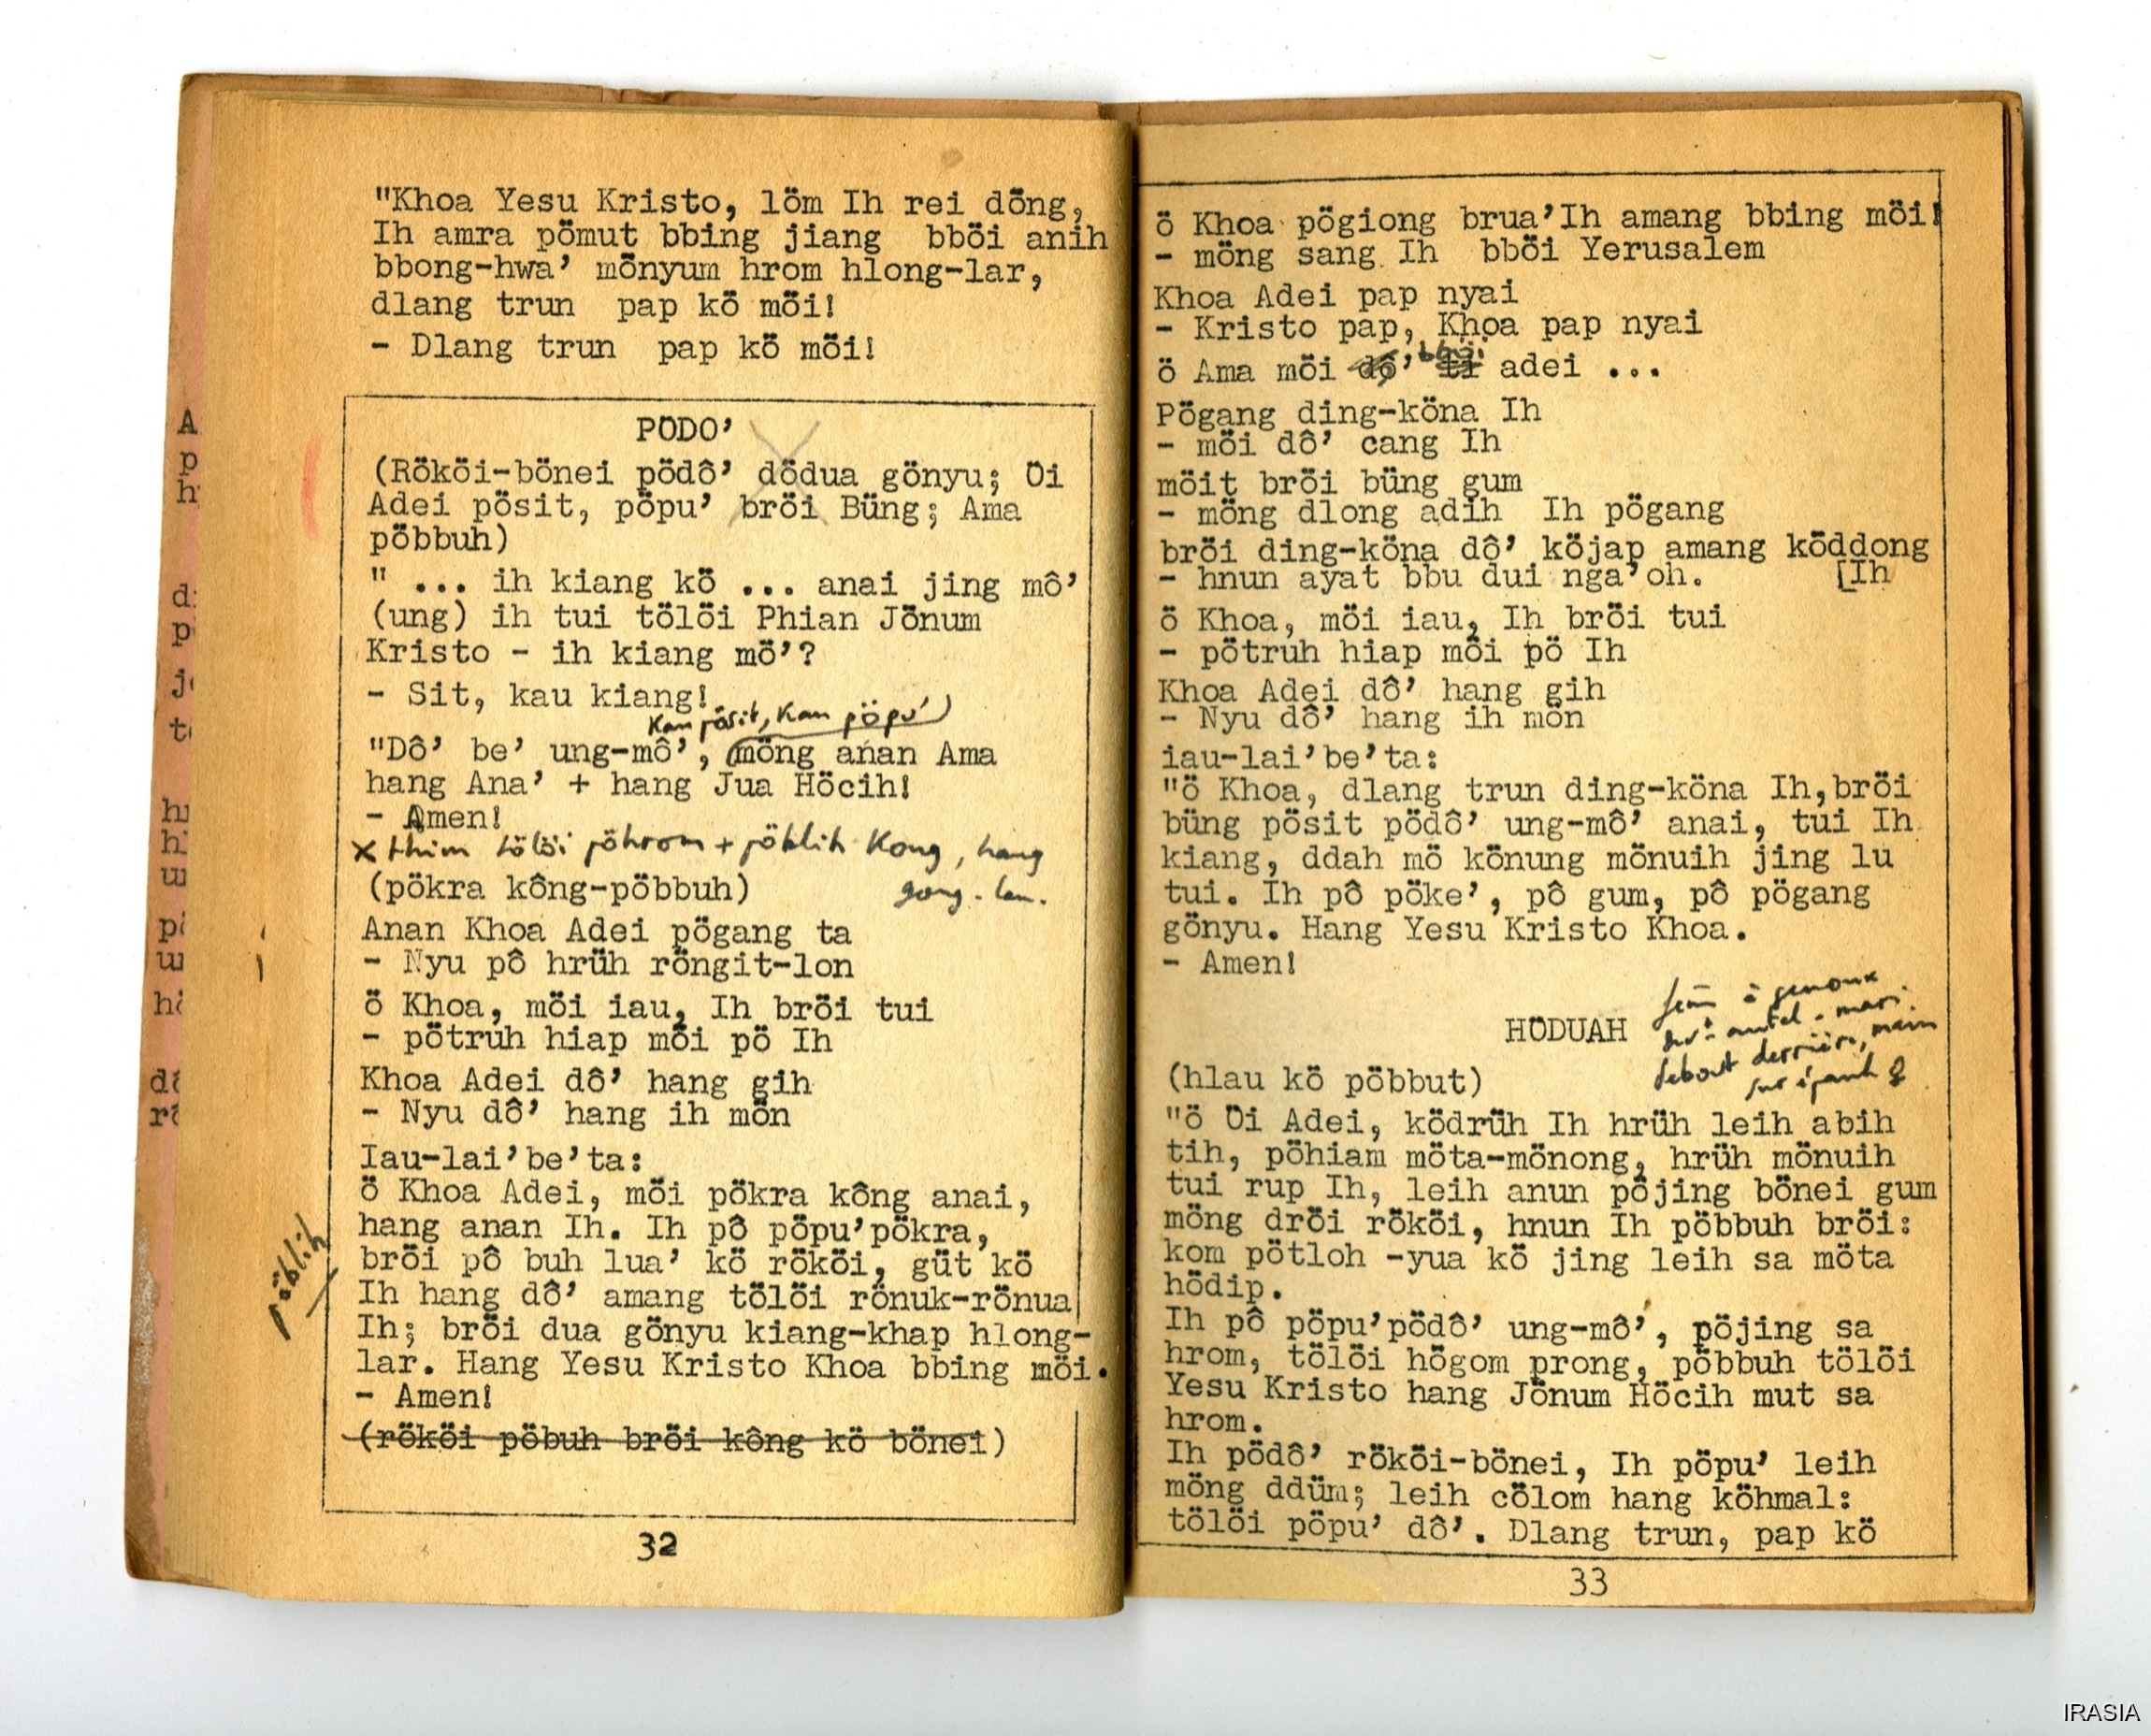 "Khoa Yesu Kristo, löm Ih rei dŏ̈ng,
Ih amra pömut bbing jiang bböi anih
bbong-hwa' mönyum hrom hlong-lar,
dlang trun pap kö möi!
- Dlang trun pap kö möi!
PÖDO'
(Rököi-bönei pödô' dödua gönyu; Öi
Adei pösit, pöpu' bröi Büng; Ama
pöbbuh)
" ... ih kiang kö ... anai jing mô'
(ung) ih tui tölöi Phian Jönum
Kristo - ih kiang mö'?
- Sit, kau kiang!
Kau pösit, kau pöpu')
"Dô' be' ung-mô', (möng anan Ama
hang Ana' + hang Jua Höcih!
- Amen!
x thim tölöi pöhrom + pöblih Kong, hang
gong-lan.
(pökra kông-pöbbuh)
Anan Khoa Adei pögang ta
- Nyu pô hrüh röngit-lon
ö Khoa, möi iau, Ih bröi tui
- pötruh hiap möi pö Ih
Khoa Adei dô' hang gih
- Nyu dô' hang ih mön
Iau-lai'be'ta:
ö Khoa Adei, möi pökra kông anai,
hang anan Ih. Ih pô pöpu'pökra,
bröi pô buh lua' kö rököi, güt kö
pöblih
Ih hang dô' amang tölöi rönuk-rönua
Ih; bröi dua gönyu kiang-khap hlong-
lar. Hang Yesu Kristo Khoa bbing möi.
- Amen!
(rököi pöbuh bröi kông kö bönei)
32
ö Khoa pögiong brua'Ih amang bbing möi!
- möng sang Ih bböi Yerusalem
Khoa Adei pap nyai
- Kristo pap, Khoa pap nyai
bböi
ö Ama möi dô' ti adei ...
Pögang ding-köna Ih
- möi dô' cang Ih
möit bröi büng gum
- möng dlong adih Ih pögang
bröi ding-köna dô' köjap amang köddong
- hnun ayat bbu dui nga'oh. [Ih
ö Khoa, möi iau, Ih bröi tui
- pötruh hiap möi pö Ih
Khoa Adei dô' hang gih
- Nyu dô' hang ih mön
iau-lai'be'ta:
"ö Khoa, dlang trun ding-köna Ih,bröi
büng pösit pödô' ung-mô' anai, tui Ih
kiang, ddah mö könung mönuih jing lu
tui. Ih pô pöke', pô gum, pô pögang
gönyu. Hang Yesu Kristo Khoa.
- Amen!
à genoux
HÖDUAH autel - mari
debout derrière, main
sur
(hlau kö pöbbut)
"ö Öi Adei, ködrüh Ih hrüh leih abih
tih, pöhiam möta-mönong, hrüh mönuih
tui rup Ih, leih anun pöjing bönei gum
möng dröi rököi, hnun Ih pöbbuh bröi:
kom pötloh -yua kö jing leih sa möta
hödip.
Ih pô pöpu'pödô' ung-mô', pöjing sa
hrom, tölöi högom prong, pöbbuh tölöi
Yesu Kristo hang Jönum Höcih mut sa
hrom.
Ih pödô' rököi-bönei, Ih pöpu' leih
möng ddüm; leih cölom hang köhmal:
tölöi pöpu' dô'. Dlang trun, pap kö
33
IRASIA